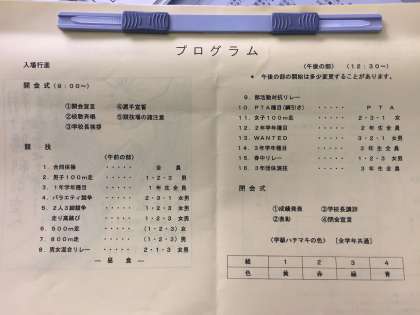 プログラム
入場行進
開会式(9:00~)
①開会宣言 ④選手宣誓
②校歌斉唱 ⑤競技場の諸注意
③学校長挨拶
競技
(午前の部)
1. 合同体操 ····· 全員
2. 男子100m走 ····· 1・2・3 男
3. 1年学年種目 ····· 1年生全員
4. バラエティ競争 ····· 2・3・1 男女
5. 2人3脚競争 ····· 2・3・1 女男
走り高跳び ····· 1・2・3 女男
6. 500m走 ····· (1・2・3)女
7. 800m走 ····· (1・2・3)男
8. 男女混合リレー ····· 2・1・3 男女
― 昼食 ―
(午後の部) (12:30~)
* 午後の部の開始は多少変更することがあります。
9. 部活動対抗リレー
10. PTA種目(綱引き) ····· PTA
11. 女子100m走 ····· 2・3・1 女
12. 2年学年種目 ····· 2年生全員
13. WANTED ····· 3・1・2 男女
14. 3年学年種目 ····· 3年生全員
15. 背中リレー ····· 1・2・3 女男
16. 3年団体演技 ····· 3年生全員
閉会式
①成績発表 ③学校長講評
②表彰 ④閉会宣言
(学級ハチマキの色) [全学年共通]
組 1 2 3 4
色 黄 赤 緑 青